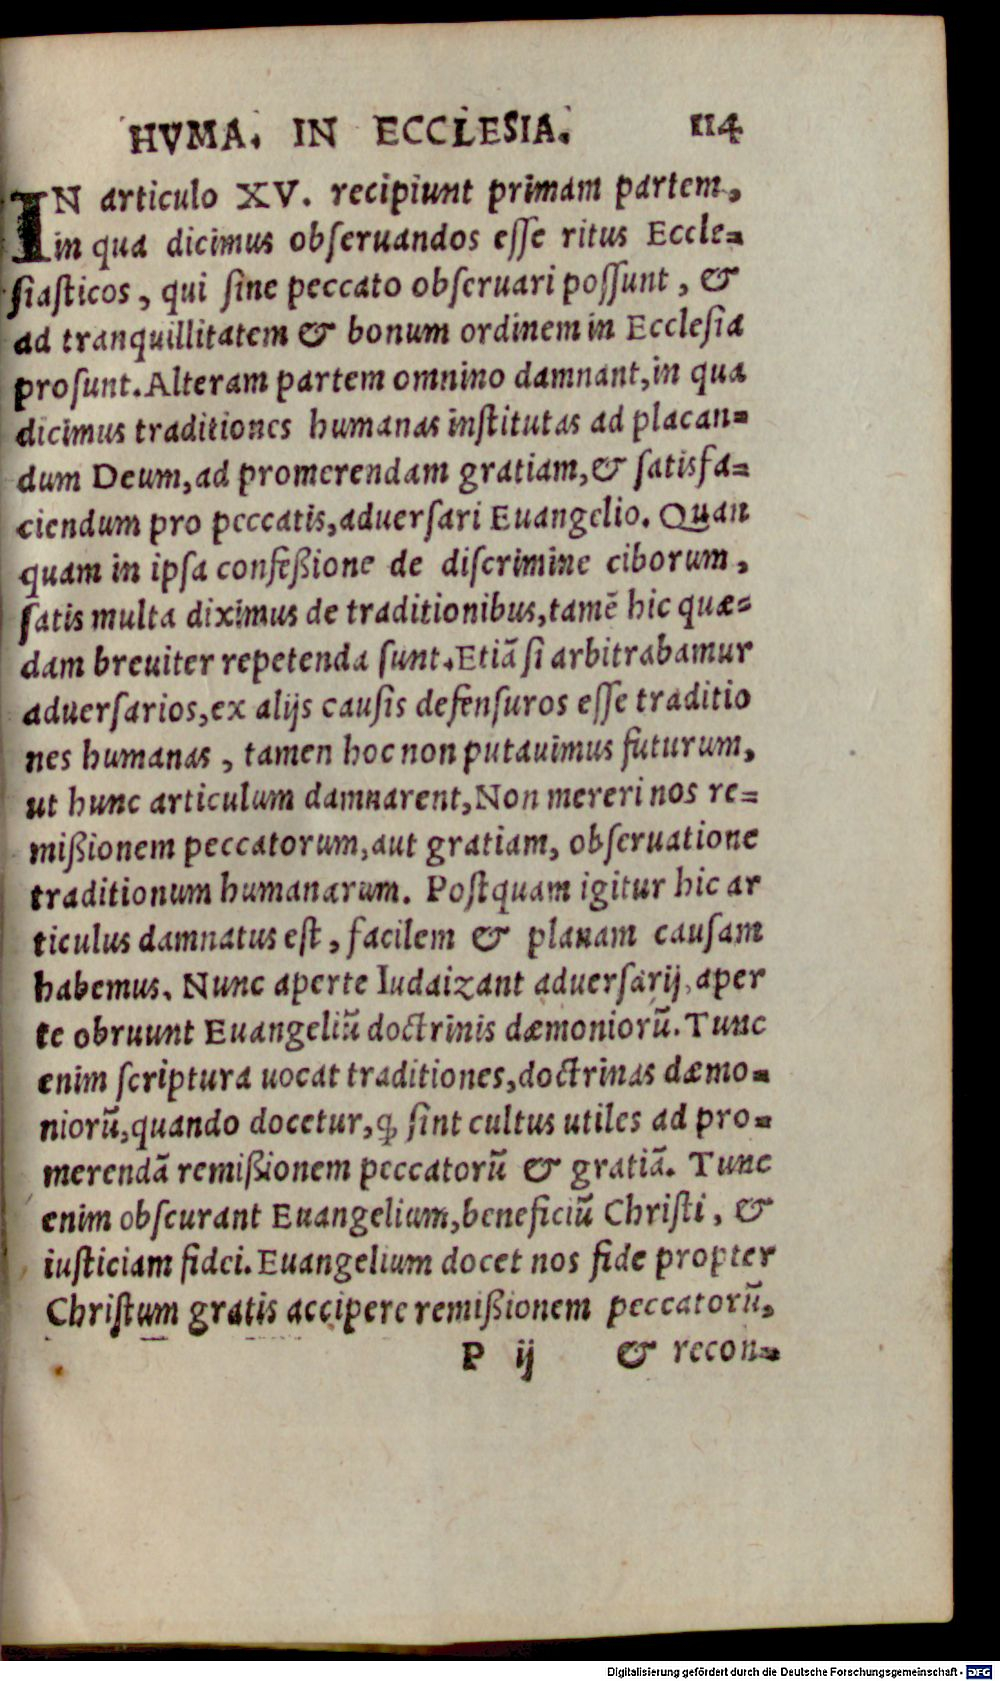 HVMA. IN ECCLESIA. 114
IN articulo XV. recipiunt primam partem,
in qua dicimus obſeruandos eſſe ritus Eccle=
ſiaſticos, qui ſine peccato obſeruari poſſunt, &
ad tranquillitatem & bonum ordinem in Eccleſia
proſunt. Alteram partem omnino damnant, in qua
dicimus traditiones humanas inſtitutas ad placan=
dum Deum, ad promerendam gratiam, & ſatisfa=
ciendum pro peccatis, aduerſari Euangelio. Quan
quam in ipſa confeßione de diſcrimine ciborum,
ſatis multa diximus de traditionibus, tamē hic quæ=
dam breuiter repetenda ſunt. Etiã ſi arbitrabamur
aduerſarios, ex alijs cauſis defenſuros eſſe traditio
nes humanas, tamen hoc non putauimus futurum,
ut hunc articulum damnarent, Non mereri nos re=
mißionem peccatorum, aut gratiam, obſeruatione
traditionum humanarum. Poſtquam igitur hic ar
ticulus damnatus eſt, facilem & planam cauſam
habemus. Nunc aperte Iudaizant aduerſarij, aper
te obruunt Euangeliũ doctrinis dæmoniorũ. Tunc
enim ſcriptura uocat traditiones, doctrinas dæmo=
niorũ, quando docetur, ꝙ ſint cultus utiles ad pro=
merendã remißionem peccatorũ & gratiã. Tunc
enim obſcurant Euangelium, beneficiũ Chriſti, &
iuſticiam fidei. Euangelium docet nos fide propter
Chriſtum gratis accipere remißionem peccatorũ,
P ij & recon=
Digitalisierung gefördert durch die Deutsche Forschungsgemeinschaft - DFG